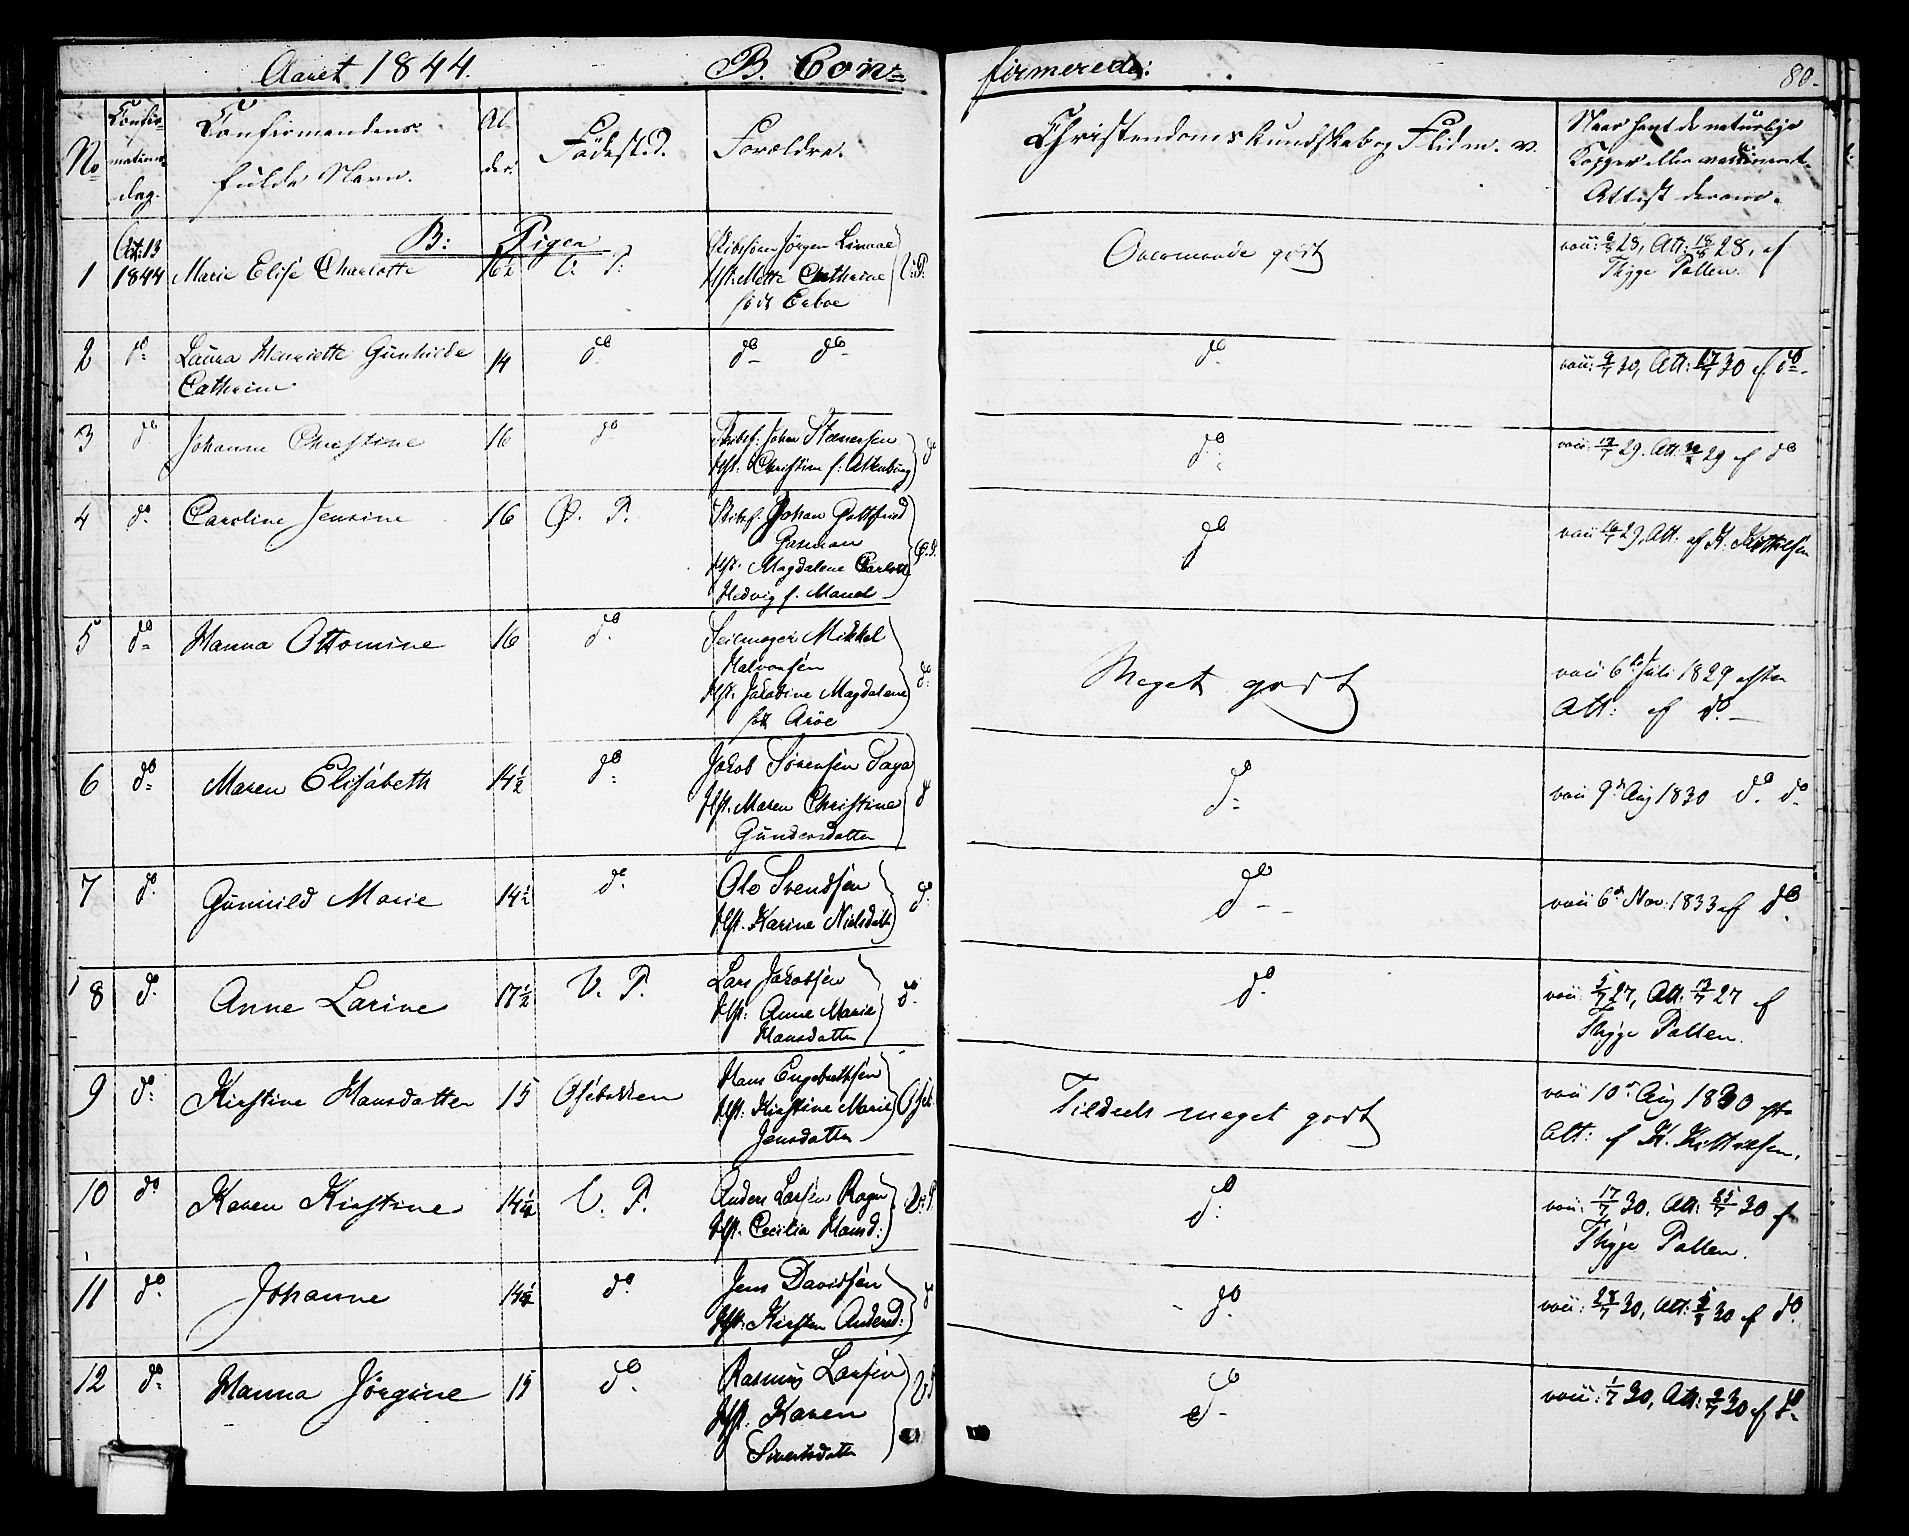 Aaret 1844. B. Con-
firmerede: 80.
No Confir-mations-dag. Confirmandens fulde Navn. Al-der. Fødested. Forældre. Christendoms Kundskab og Flid m. v. Naar havt de naturlige Kopper eller vaccineret. Attest derom.
B: Piger
1 Oct: 13 1844 Marie Elise Charlotte 16½ V. P. Jörgen
Hst: Mette Cathrine
født V: P. Overmaade godt vacc: 28, Att: 28, af
Thyge Pallen.
2 do Laura Henriette Gunhilde
Cathrine 14 do do do do vacc: 9/7 30, Att: 17/7 30 af do
3 do Johanne Christine 16 do Johan
Hst: Christine f: Altenburg do do vacc: 29. Att: 29 af do
4 do Caroline Jensine 16 Ø. P. Skibsf: Johan Gottfried
Garman
Hst: Magdalene Carlotte
Hedvig f. Ø. P. do vacc 29, Att. af K. Kittilsen
5 do Hanna Ottomine 16 do Seilmager Mikkel
Halvorsen
Hst: Jakobine Magdalene
født Aröe do Meget godt vacc 6te Juli 1829 efter
Att: af do
6 do Maren Elisabeth 14½ do Jakob Sörensen
Hst: Maren Christine
Gundersdatter do do vacc 9de Aug 1830 do do
7 do Gunnild Marie 14½ do Ole Svendsen
Hst. Karine Nielsdatter do do vacc 6te Nov: 1833 af do
8 do Anne Larine 17½ V. P. Lars Jakobsen
Hst: Anne Marie
Hansdatter do do vacc: 5/7 27, Att: 27 af
Thyge Pallen.
9 do Kirstine Hansdatter 15 Osebakken Hans Engebrethsen
Hst: Kirstine Marie
Jensdatter Oseb Tildeels meget godt vacc 10de Aug 1830 efter
Att: af K. Kittilsen.
10 do Karen Kirstine 14½ V. P. Anders Larsen
Hst. Cecilia Hansd: V: P do vacc: 17/7 30, Att: 25/7 30 af
Thyge Pallen.
11 do Johanne 14½ do Jens Davidsen
Hst: Kirsten Andersd: do do vacc: 28/7 30, Att: 30 af do
12 do Hanna Jörgine 15 do Rasmus Larsen
Hst. Karen
Sivertsdatter V. P do vacc: 1/7 30, Att: 30 af do